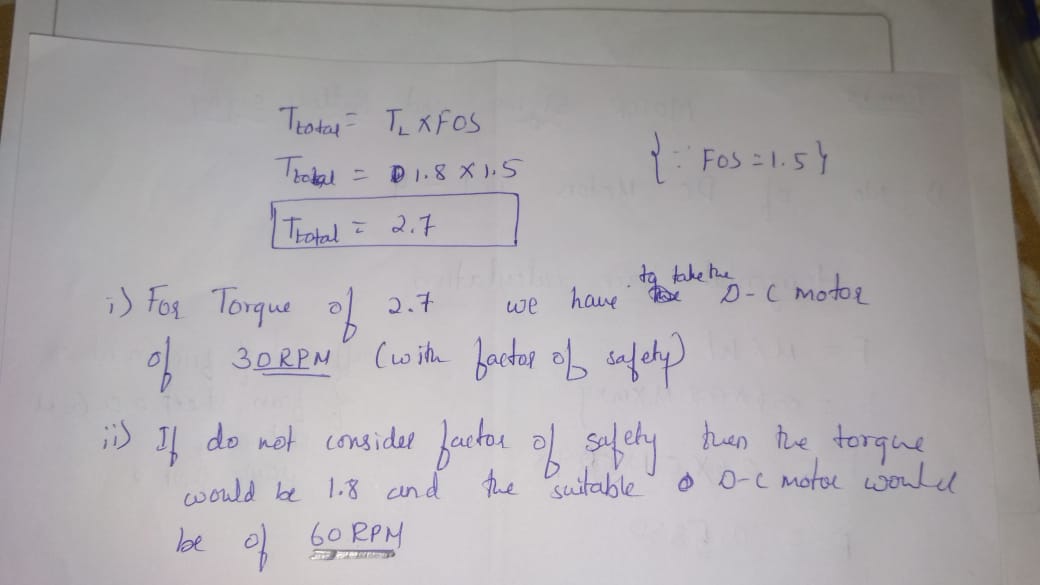 Ttotal = TL x FOS
{∵ FOS = 1.5}
Ttotal = 1.8 x 1.5
Ttotal = 2.7
i) For Torque of 2.7 we have to take the D-C motor
of 30 RPM (with factor of safety)
ii) If do not consider factor of safety then the torque
would be 1.8 and the suitable D-C motor would
be of 60 RPM